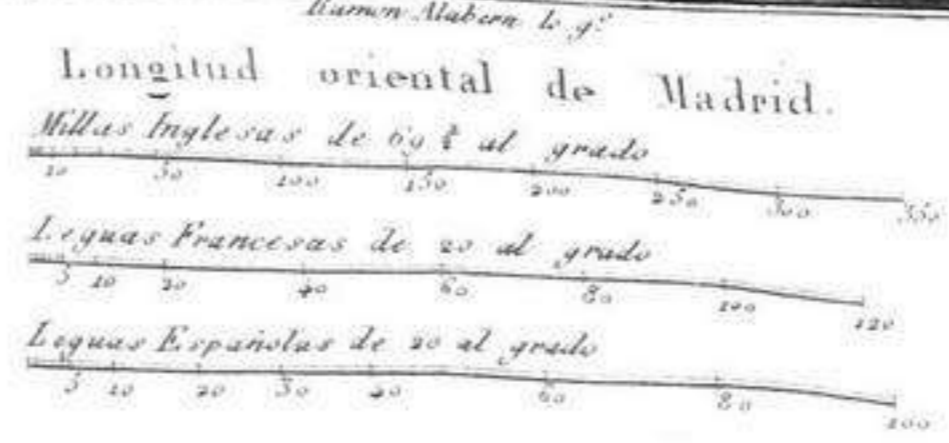 Ramon Alabern lo g.º
Longitud oriental de Madrid.
Millas Inglesas de 69 al grado
10 50 100 150 200 250 300 350
Leguas Francesas de 20 al grado
5 10 20 40 60 80 100 120
Leguas Españolas de 20 al grado
5 10 20 30 40 60 80 100